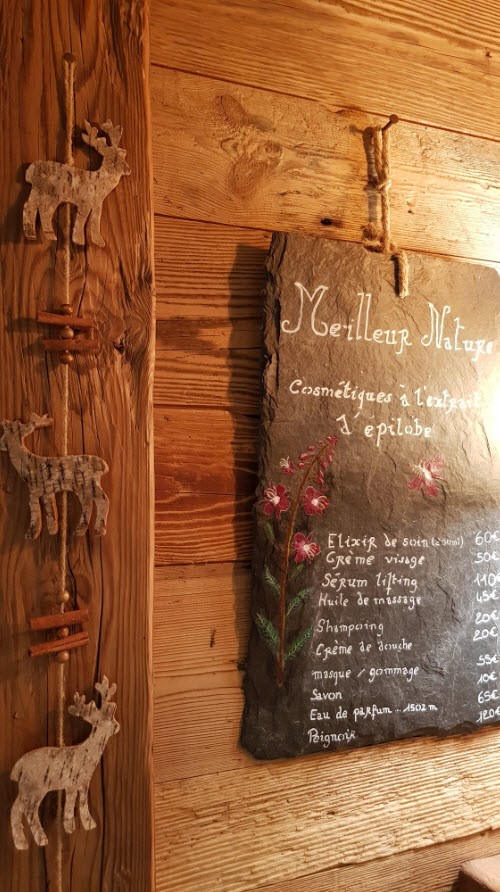 Meilleur Nature
Cosmétiques à l'extrait
d'épilobe
Elixir de soin (20ml) 60€
Crème visage 50€
Sérum lifting 110€
Huile de massage 45€
Shampoing 20€
Crème de douche 20€
masque / gommage 55€
Savon 10€
Eau de parfum .. 1502 m 65€
Peignoir 120€